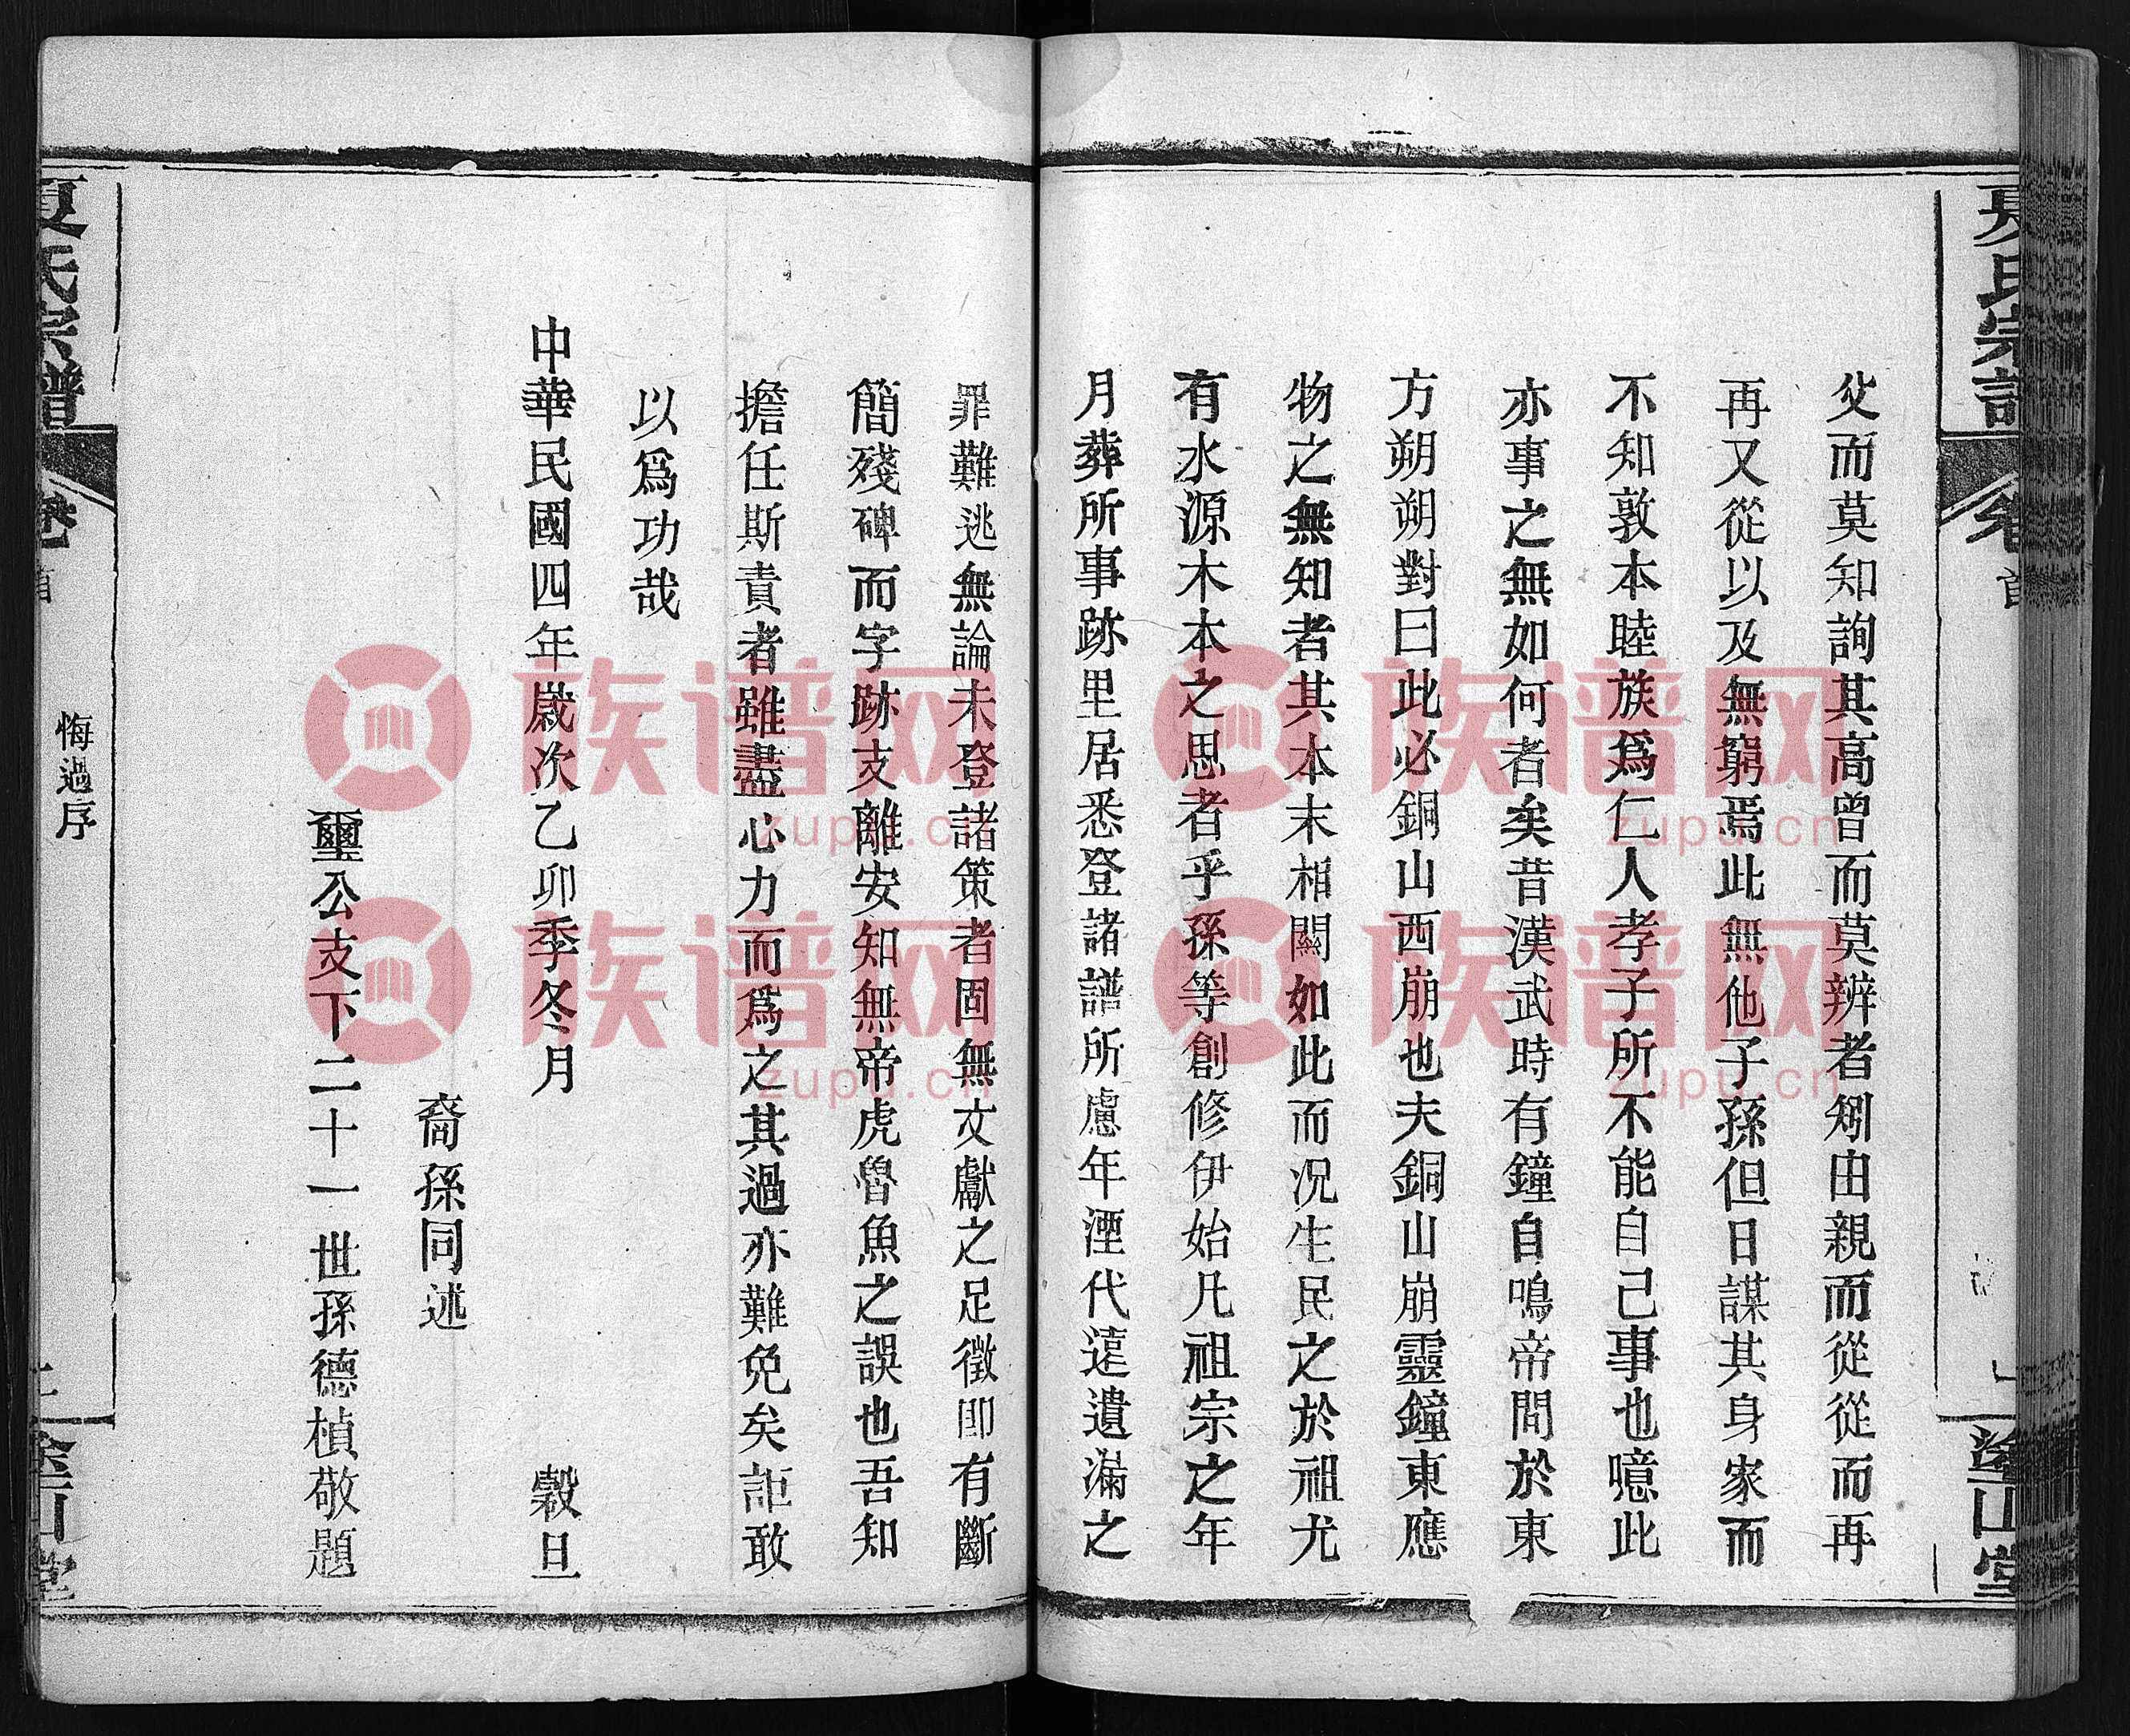 夏氏宗譜
卷首
塗山堂
父而莫知詢其高曾而莫辨者矧由親而從從而再
再又從以及無窮焉此無他子孫但日謀其身家而
不知敦本睦族爲仁人孝子所不能自己事也噫此
亦事之無如何者矣昔漢武時有鐘自鳴帝問於東
方朔朔對曰此必銅山西崩也夫銅山崩靈鐘東應
物之無知者其本末相關如此而况生民之於祖尤
有水源木本之思者乎孫等創修伊始凡祖宗之年
月葬所事跡里居悉登諸譜所慮年湮代遠遺漏之
罪難逃無論未登諸策者固無文獻之足徵即有斷
簡殘碑而字跡支離安知無帝虎魯魚之誤也吾知
擔任斯責者雖盡心力而爲之其過亦難免矣詎敢
以爲功哉
中華民國四年歲次乙卯季冬月 穀旦
裔孫同述
璽公支下二十一世孫德楨敬題
夏氏宗譜
卷首
悔過序
塗山堂
族谱网
zupu.cn
族谱网
zupu.cn
族谱网
zupu.cn
族谱网
zupu.cn